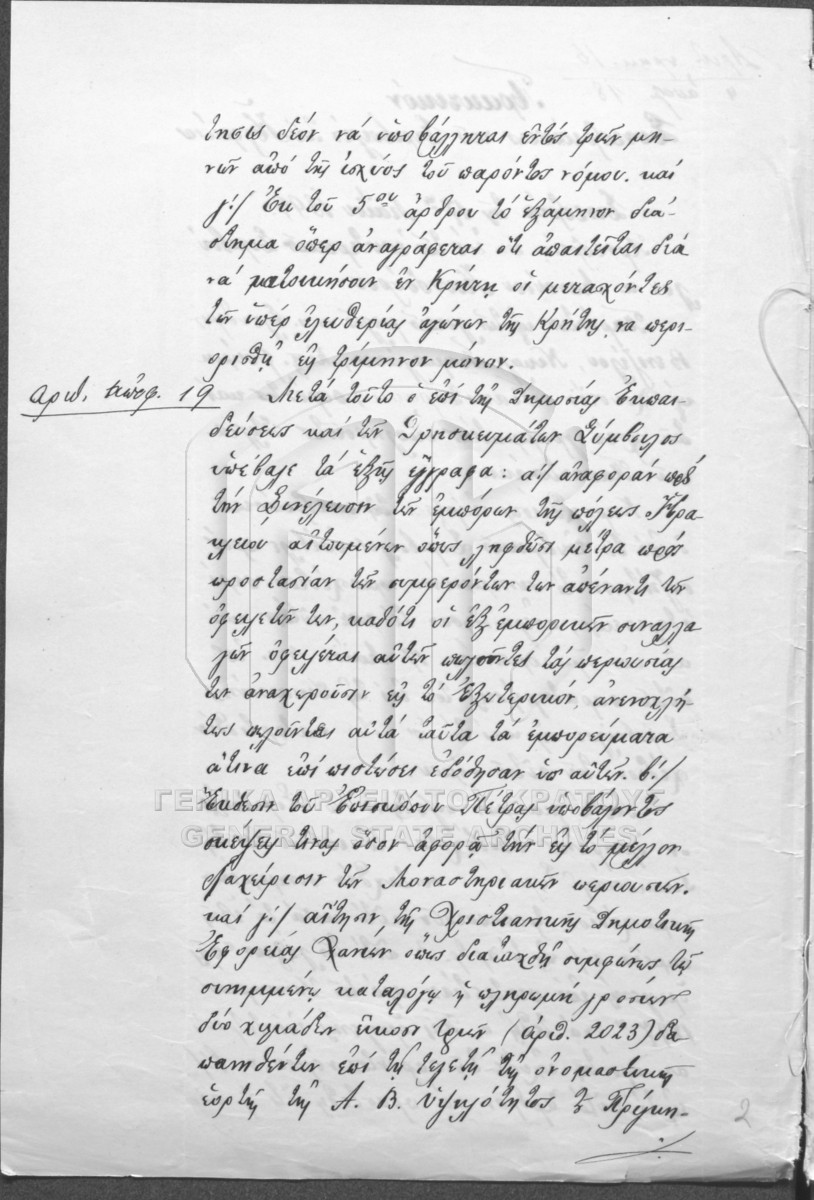 τήσεις δέον νά ὑποβάλληται ἐντός τριῶν μη-
νῶν ἀπό τῆς ἰσχύος τοῦ παρόντος νόμου. καί
γ΄./ Ἐκ τοῦ 5ου ἄρθρου τό ἑξάμηνον διά-
στημα ὅπερ ἀναγράφεται ὅτι ἀπαιτεῖται διά
νά κατοικήσουν ἐν Κρήτῃ οἱ μετασχόντες
τῶν ὑπέρ ἐλευθερίας ἀγώνων τῆς Κρήτης, να περι-
ορισθῇ εἰς τρίμηνον μόνον.
Αριθ. ἀποφ. 19 Μετά τοῦτο ὁ ἐπί τῆς Δημοσίας Ἐκπαι-
δεύσεως καί τῶν Θρησκευμάτων Σύμβουλος
ὑπέβαλε τά ἑξῆς ἔγγραφα: α΄./ ἀναφοράν πρός
τήν Συνέλευσιν τῶν ἐμπόρων τῆς πόλεως Ἡρα-
κλείου αἰτουμένων ὅπως ληφθῶσι μέτρα πρός
προστασίαν τῶν συμφερόντων των ἀπέναντι τῶν
ὀφειλετῶν των, καθότι οἱ ἐξ ἐμπορικῶν συναλλα
γῶν ὀφειλέται αὐτῶν πωλοῦντες τάς περιουσίας
των ἀναχωροῦσιν εἰς τό Ἐξωτερικόν, ἀνενοχλή-
τως πωλοῦνται αὐτά ταῦτα τά ἐμπορεύματα
ἅτινα ἐπί πιστώσει ἐδόθησαν ὑπ' αὐτῶν. β΄./
Ἔκθεσιν τοῦ Ἐπισκόπου Πέτρας ὑποβάλοντος
σκέψεις τινας ὅσον ἀφορᾷ τήν εἰς τό μέλλον
διαχείρισιν τῶν Μοναστηριακῶν περιουσιῶν.
καί γ΄./ αἴτησιν τῆς Χριστιανικῆς Δημοτικῆς
Ἐφορείας Χανίων ὅπως διαταχθῇ συμφώνως τῷ
συνημμένῳ καταλόγῳ ἡ πληρωμή γροσίων
δύο χιλιάδων εἴκοσι τριῶν (ἀριθ. 2023) δα
πανηθέντων ἐπί τῇ τελετῇ τῆς ὀνομαστικῆς
ἑορτῆς τῆς Α. Β. Ὑψηλότητος τοῦ Πρίγκη-
2
ΓΕΝΙΚΑ ΑΡΧΕΙΑ ΤΟΥ ΚΡΑΤΟΥΣ
GENERAL STATE ARCHIVES